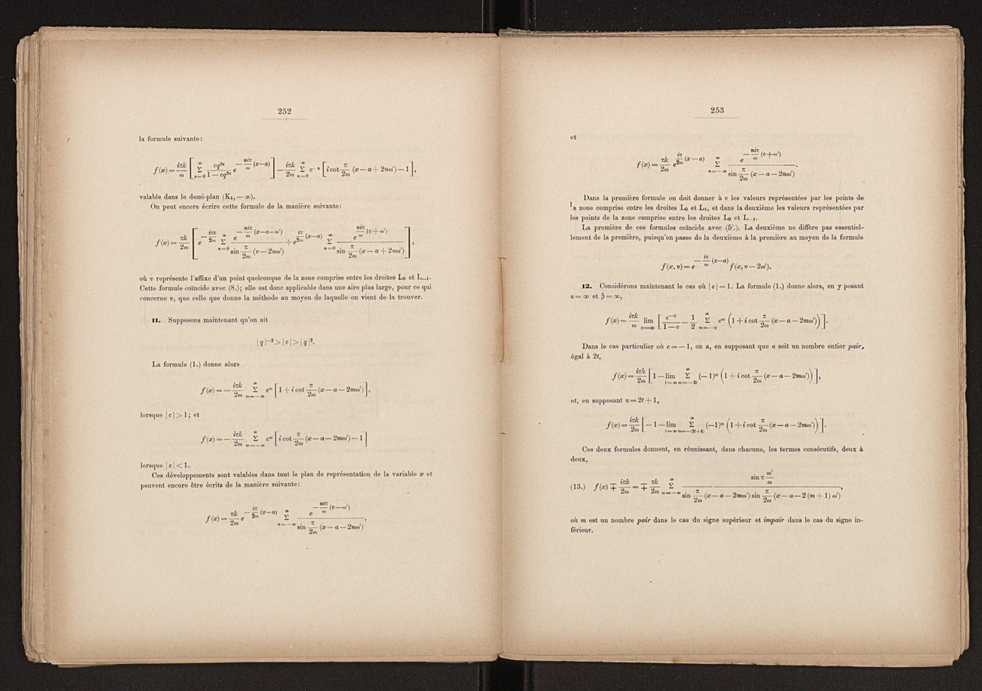 252
la formule suivante:
f(x) = iπk/m [ Σ_{n=0}^{∞} cq²ⁿ/(1−cq²ⁿ) e^{−(niπ/m)(x−a)} ] − iπk/2m Σ_{n=0}^{∞} c⁻ⁿ [ i cot π/2m (x−a+2nω′) − 1 ],
valable dans le demi-plan (K₁, − ∞).
On peut encore écrire cette formule de la manière suivante:
où v représente l'affixe d'un point quelconque de la zone comprise entre les droites L₀ et L₋₁.
Cette formule coïncide avec (8.); elle est donc applicable dans une aire plus large, pour ce qui
concerne v, que celle que donne la méthode au moyen de laquelle on vient de la trouver.
11. Supposons maintenant qu'on ait
|q|⁻² > |c| > |q|².
La formule (1.) donne alors
f(x) = − iπk/2m Σ_{n=−∞}^{∞} cⁿ [ 1 + i cot π/2m (x−a−2nω′) ],
lorsque |c| > 1; et
f(x) = − iπk/2m Σ_{n=−∞}^{∞} cⁿ [ i cot π/2m (x−a−2nω′) − 1 ]
lorsque |c| < 1.
Ces développements sont valables dans tout le plan de représentation de la variable x et
peuvent encore être écrits de la manière suivante:
f(x) = πk/2m e^{−(iπ/2m)(x−a)} Σ_{n=−∞}^{∞} e^{−(niπ/m)(v−ω′)} / sin π/2m (x−a−2nω′),
253
et
f(x) = πk/2m e^{(iπ/2m)(x−a)} Σ_{n=−∞}^{∞} e^{−(niπ/m)(v+ω′)} / sin π/2m (x−a−2nω′).
Dans la première formule on doit donner à v les valeurs représentées par les points de
la zone comprise entre les droites L₀ et L₁, et dans la deuxième les valeurs représentées par
les points de la zone comprise entre les droites L₀ et L₋₁.
La première de ces formules coïncide avec (5′.). La deuxième ne diffère pas essentiel-
lement de la première, puisqu'on passe de la deuxième à la première au moyen de la formule
f(x, v) = e^{−(iπ/m)(x−a)} f(x, v−2ω′).
12. Considérons maintenant le cas où |c| = 1. La formule (1.) donne alors, en y posant
α = ∞ et β = ∞,
Dans le cas particulier où c = − 1, on a, en supposant que s soit un nombre entier pair,
égal à 2t,
et, en supposant s = 2t + 1,
Ces deux formules donnent, en réunissant, dans chacune, les termes consécutifs, deux à
deux,
(13.) f(x) ∓ iπk/2m = ∓ πk/2m Σ_{m=−∞}^{∞} sin π ω′/m / ( sin π/2m (x−a−2mω′) sin π/2m (x−a−2(m+1)ω′) ),
où m est un nombre pair dans le cas du signe supérieur et impair dans le cas du signe in-
férieur.